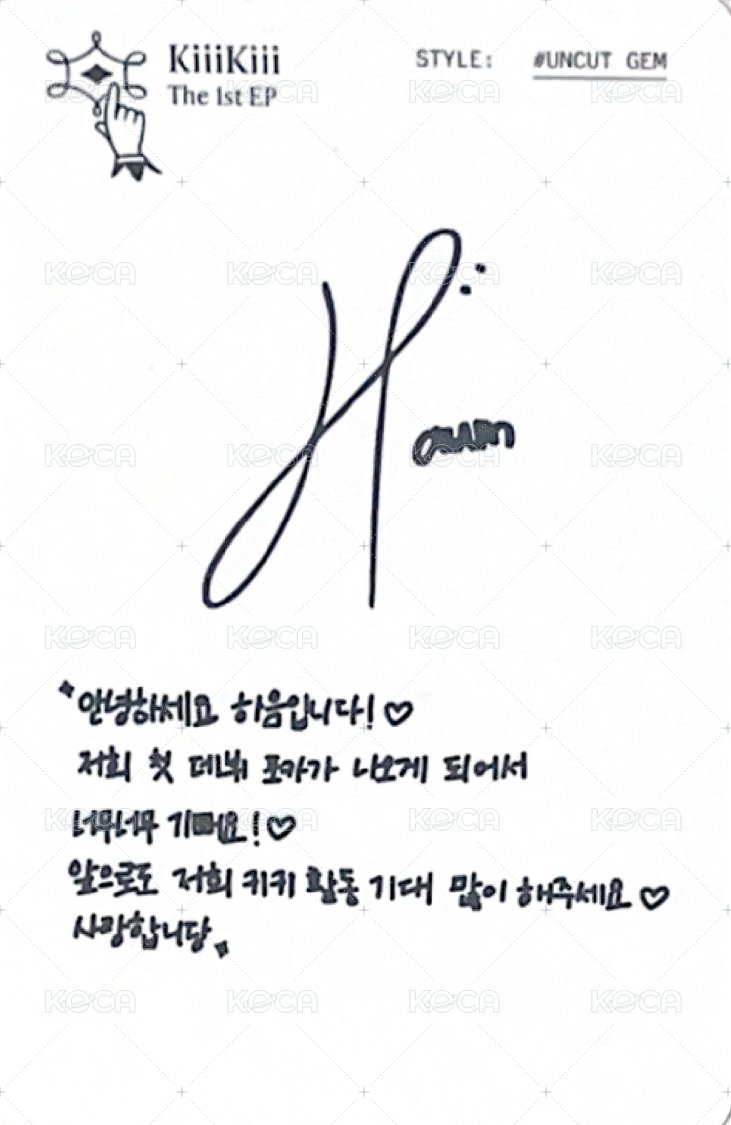 KiiiKiii
The 1st EP
STYLE: #UNCUT GEM
Haum
안녕하세요 하음입니다! ♡
저희 첫 데뷔 포카가 나오게 되어서
너무너무 기뻐요! ♡
앞으로도 저희 키키 활동 기대 많이 해주세요 ♡
사랑합니당
KOCA